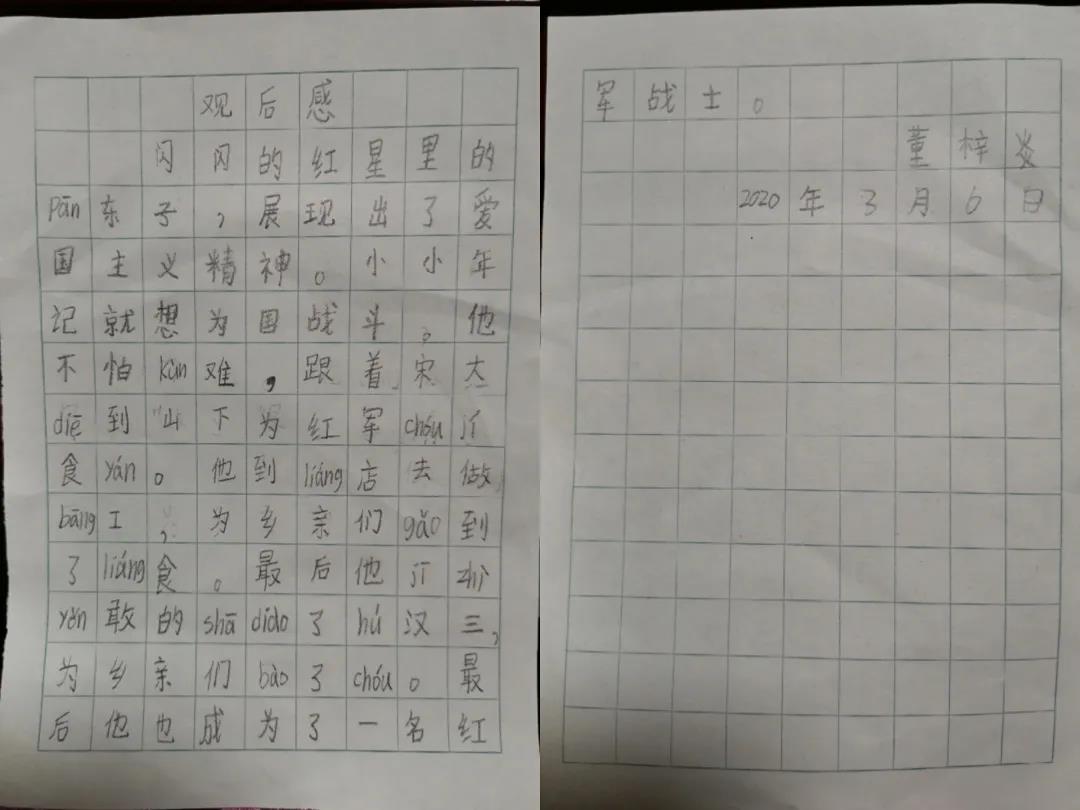 观后感
闪闪的红星里的
Pān东子,展现出了爱
国主义精神。小小年
记就想为国战斗。他
不怕kùn难,跟着宋大
diē到山下为红军chóují
食yán。他到liáng店去做
bāng工,为乡亲们gǎo到
了liáng食。最后他jī zhì
yǒn敢的shā diǎo了hú汉三,
为乡亲们bào了chóu。最
后他也成为了一名红
军战士。
董梓炎
2020年3月6日